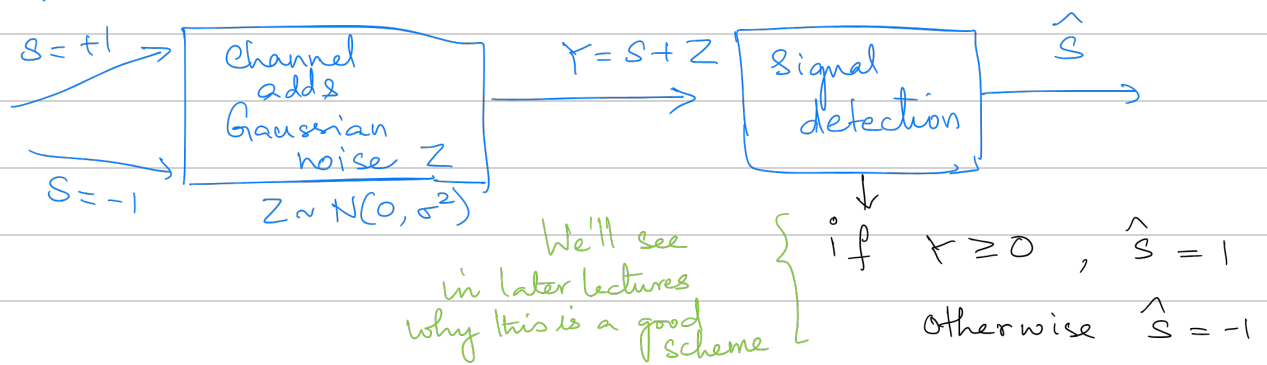 S = +1
Channel
adds
Gaussian
noise Z
S = -1
Z ~ N(0, σ²)
Y = S + Z
Signal
detection
Ŝ
We'll see
in later lectures
why this is a good
scheme
if Y ≥ 0, Ŝ = 1
otherwise Ŝ = -1